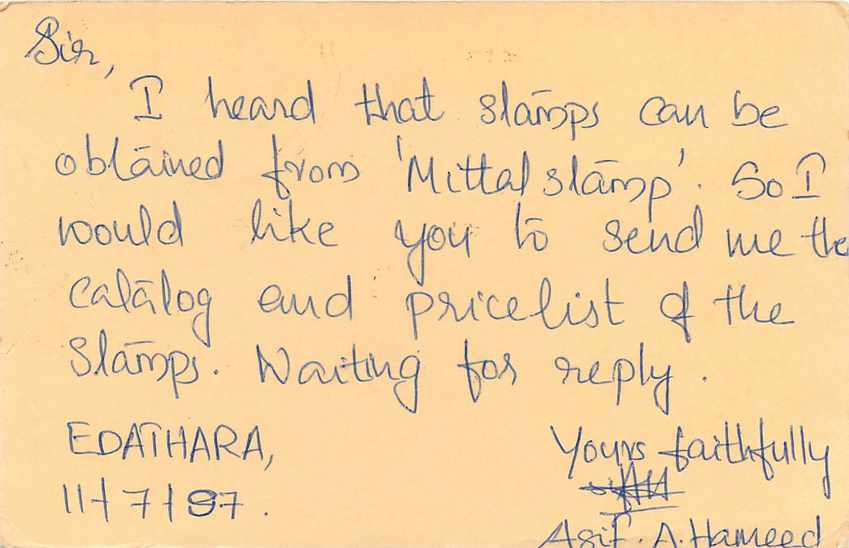 Sir,
I heard that stamps can be
obtained from 'Mittal stamp'. So I
would like you to send me the
catalog and pricelist of the
stamps. Waiting for reply.
EDATHARA,
Yours faithfully
11/7/97.
Asif. A. Hameed